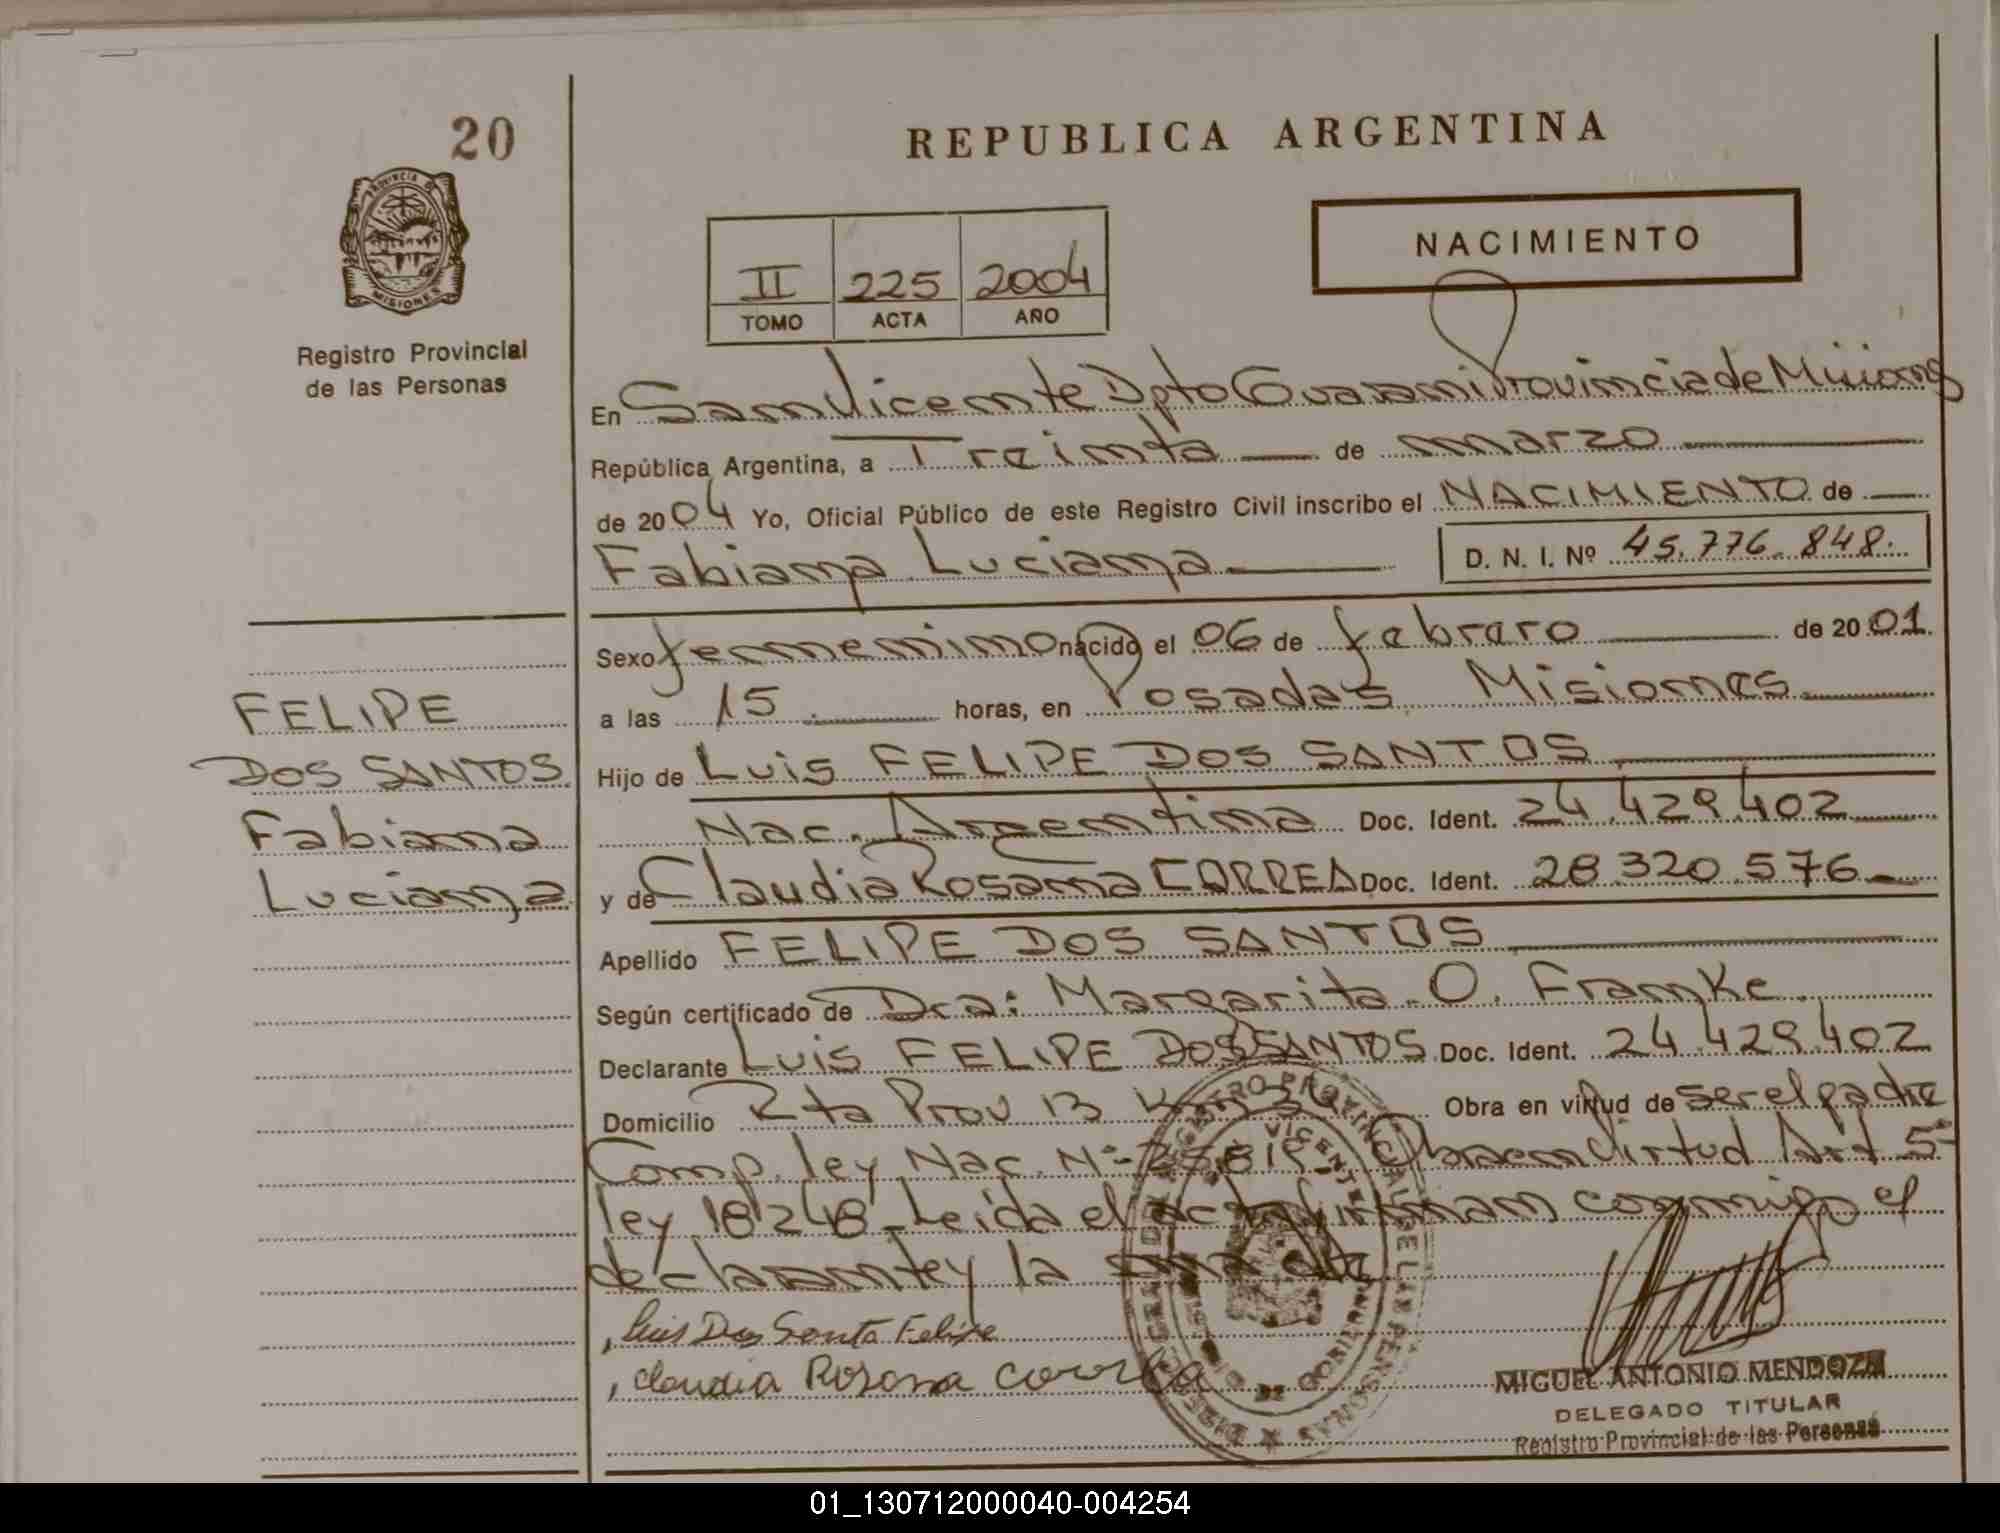 20
REPUBLICA ARGENTINA
PROVINCIA DE
MISIONES
Registro Provincial
de las Personas
NACIMIENTO
II 225 2004
TOMO ACTA AÑO
En San Vicente Dpto Guarani Provincia de Misiones
República Argentina, a Treinta de marzo
de 2004 Yo, Oficial Público de este Registro Civil inscribo el NACIMIENTO de
Fabiana Luciana D. N. I. Nº 45.776.848.
Sexo femenino nacido el 06 de febrero de 2001.
a las 15 horas, en Posadas Misiones
Hijo de Luis FELIPE DOS SANTOS
Nac. Argentina Doc. Ident. 24.429.402
y de Claudia Rosana CORREA Doc. Ident. 28.320.576
Apellido FELIPE DOS SANTOS
Según certificado de Dra: Margarita O. Franke
Declarante Luis FELIPE DOS SANTOS Doc. Ident. 24.429.402
Domicilio Rta Prov 13 Km Obra en virtud de ser el padre
Comp. ley Nac. Nº Obra en Virtud Art 5º
ley 18248 - Leida el acta firman conmigo el
declarante y la
Luis Dos Santo Felipe
Claudia Rosana Correa
MIGUEL ANTONIO MENDOZA
DELEGADO TITULAR
Registro Provincial de las Personas
FELIPE
DOS SANTOS
Fabiana
Luciana
01_130712000040-004254